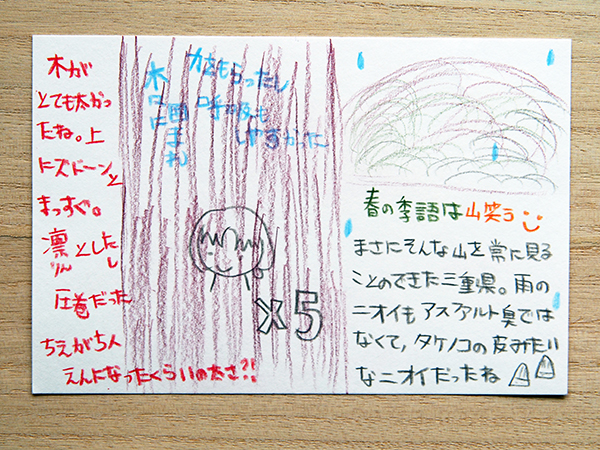 木が
とても太かっ
たね。上
にズドーンと
まっすぐ。
凛とした
りん し
圧巻だった
ちえが5人
えんになったくらいの太さ?!
木々に
囲まれ
力をもらったし
呼吸も
しやすかった
×5
春の季語は山笑う
まさにそんな山を常に見る
ことのできた三重県。雨の
ニオイもアスファルト臭では
なくて、タケノコの皮みたい
なニオイだったね